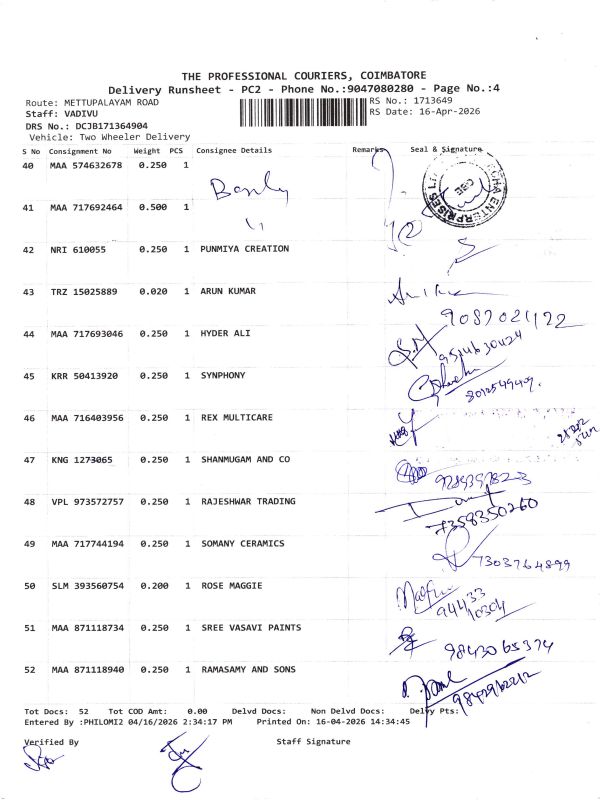 THE PROFESSIONAL COURIERS, COIMBATORE
Delivery Runsheet - PC2 - Phone No.:9047080280 - Page No.:4
Route: METTUPALAYAM ROAD RS No.: 1713649
Staff: VADIVU RS Date: 16-Apr-2026
DRS No.: DCJB171364904
Vehicle: Two Wheeler Delivery
S No Consignment No Weight PCS Consignee Details Remarks Seal & Signature
40 MAA 574632678 0.250 1
41 MAA 717692464 0.500 1
42 NRI 610055 0.250 1 PUNMIYA CREATION
43 TRZ 15025889 0.020 1 ARUN KUMAR
9087021122
44 MAA 717693046 0.250 1 HYDER ALI
45 KRR 50413920 0.250 1 SYNPHONY
8012549409.
46 MAA 716403956 0.250 1 REX MULTICARE
47 KNG 1273065 0.250 1 SHANMUGAM AND CO
48 VPL 973572757 0.250 1 RAJESHWAR TRADING
7358350260
49 MAA 717744194 0.250 1 SOMANY CERAMICS
7303764899
50 SLM 393560754 0.200 1 ROSE MAGGIE
94433
10304
51 MAA 871118734 0.250 1 SREE VASAVI PAINTS
9843065374
52 MAA 871118940 0.250 1 RAMASAMY AND SONS
Tot Docs: 52 Tot COD Amt: 0.00 Delvd Docs: Non Delvd Docs: Delvy Pts:
Entered By :PHILOMI2 04/16/2026 2:34:17 PM Printed On: 16-04-2026 14:34:45
Verified By Staff Signature